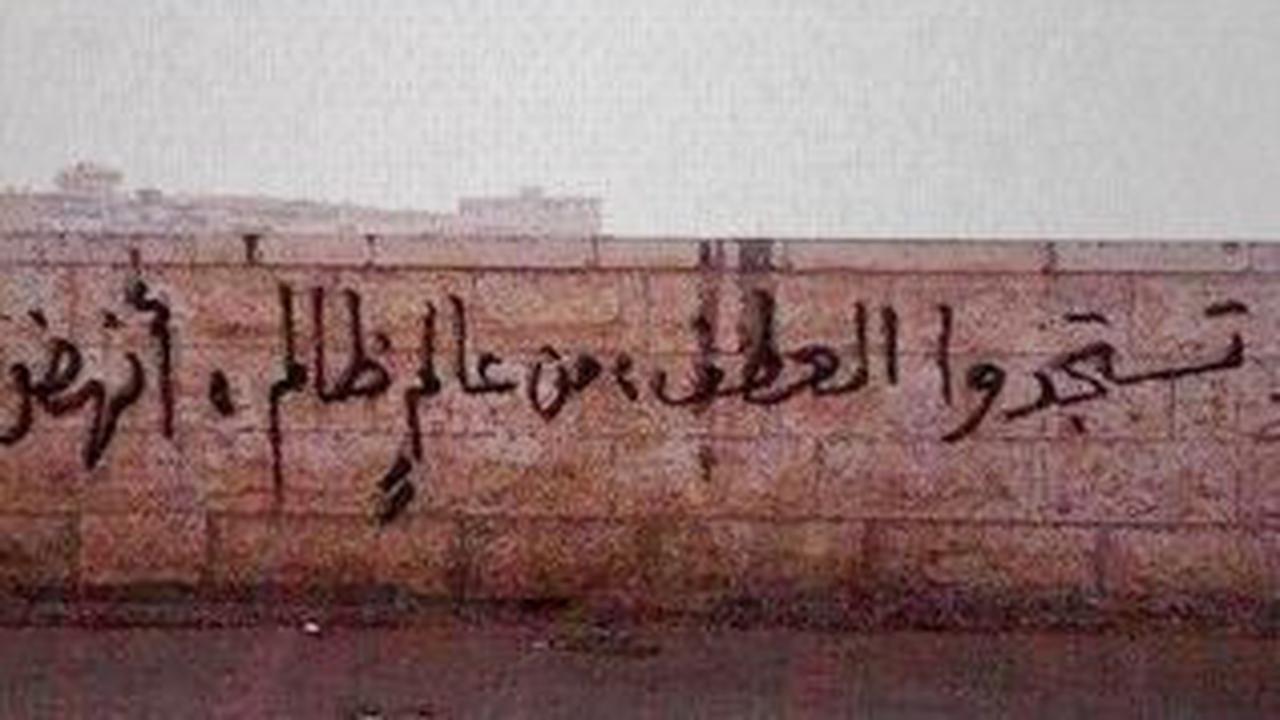 تستجدوا العطف، من عالمٍ ظالم، أنهض